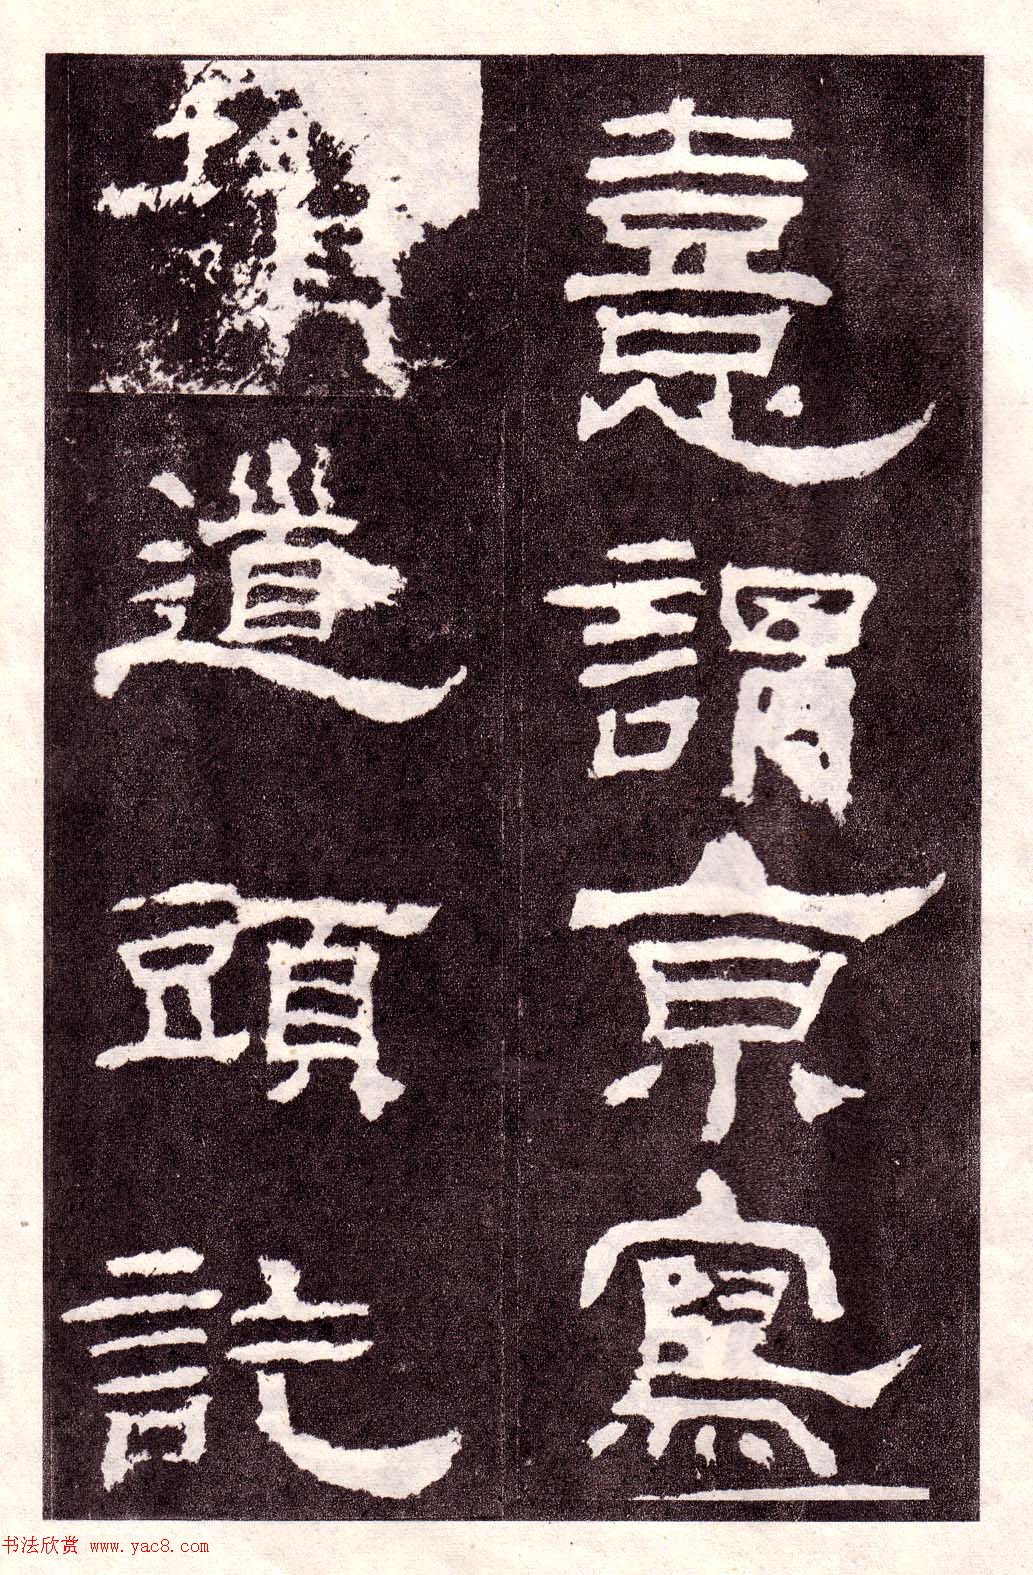 意謂京寫
道頭訖
书法欣赏 www.yac8.com